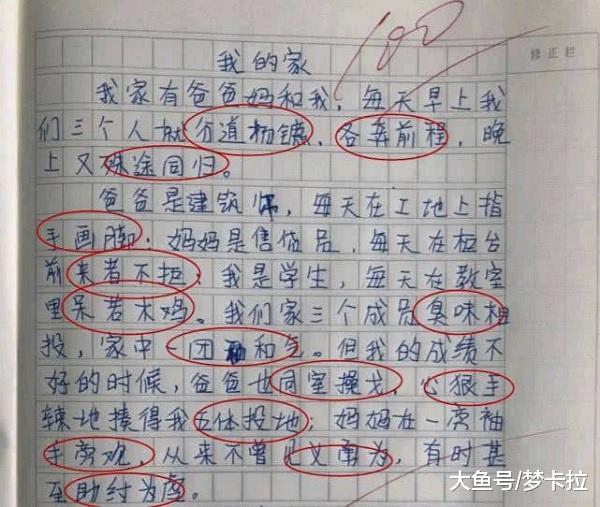 100
修正栏
我的家
我家有爸爸妈和我，每天早上我
们三个人就分道扬镳，各奔前程，晚
上又殊途同归。
爸爸是建筑师，每天在工地上指
手画脚；妈妈是售货员，每天在柜台
前来者不拒；我是学生，每天在教室
里呆若木鸡。我们家三个成员臭味相
投，家中一团和气。但我的成绩不
好的时候，爸爸也同室操戈，心狠手
辣地揍得我五体投地；妈妈在一旁袖
手旁观，从来不曾见义勇为，有时甚
至助纣为虐。
大鱼号/梦卡拉